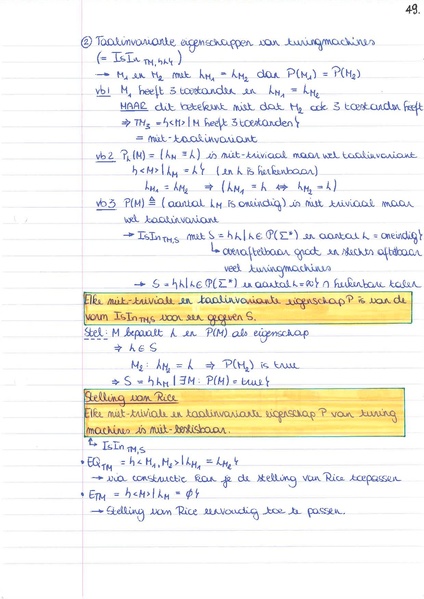 49.
② Taalinvariante eigenschappen van turingmachines
(= IsIn TM,{L})
→ M₁ en M₂ met L_M₁ = L_M₂ dan P(M₁) = P(M₂)
vb1 M₁ heeft 3 toestanden en L_M₁ = L_M₂
MAAR dit betekent niet dat M₂ ook 3 toestanden heeft
⇒ TM₃ = {<M> | M heeft 3 toestanden}
= niet-taalinvariant
vb2 P_L(M) = (L_M = L) is niet-triviaal maar wel taalinvariant
{<M> | L_M = L} (en L is herkenbaar)
L_M₁ = L_M₂ ⇒ (L_M₁ = L ⇔ L_M₂ = L)
vb3 P(M) ≜ (aantal L_M is oneindig) is niet triviaal maar
wel taalinvariant
→ IsIn_TM,S met S = {L | L ∈ P(Σ*) en aantal L = oneindig}
↳ overaftelbaar groot en slechts aftelbaar
veel turingmachines
→ S = {L | L ∈ P(Σ*) en aantal L = ∞} ∩ herkenbare talen
Elke niet-triviale en taalinvariante eigenschap P is van de
vorm IsIn_TM,S voor een gegeven S.
Stel: M bepaalt L en P(M) als eigenschap
⇒ L ∈ S
M₂: L_M₂ = L ⇒ P(M₂) is true
⇒ S = {L_M | ∃M: P(M) = true}
Stelling van Rice
Elke niet-triviale en taalinvariante eigenschap P van turing
machines is niet-beslisbaar.
↳ IsIn_TM,S
• EQ_TM = {<M₁, M₂> | L_M₁ = L_M₂}
→ via constructie kan je de stelling van Rice toepassen
• E_TM = {<M> | L_M = ∅}
→ Stelling van Rice eenvoudig toe te passen.